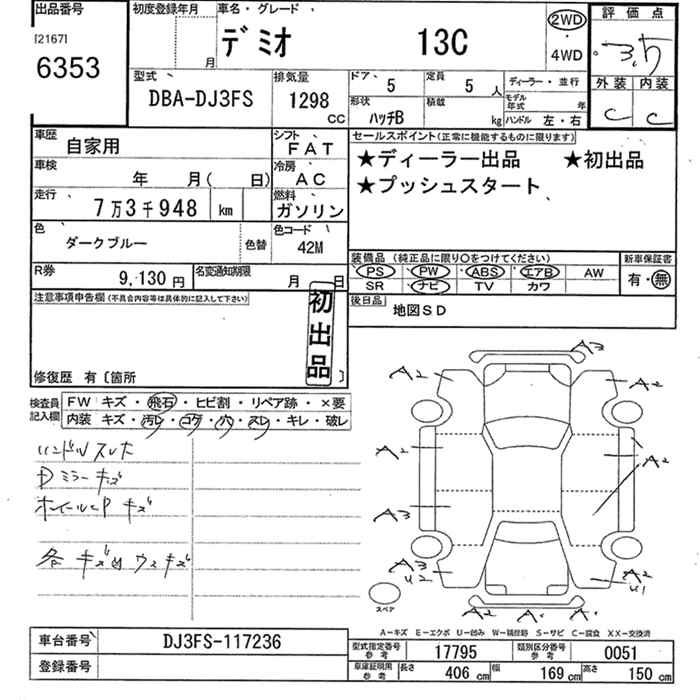 出品番号
[2167]
6353
初度登録年月
月
車名・グレード
デミオ 13C
2WD
・
4WD
評価点
3.5
外装 内装
C C
型式
DBA-DJ3FS
排気量
1298
CC
ドア 5
定員 5 人
形状 ハッチB
積載 kg
ディーラー・並行
モデル年式 年
ハンドル 左・右
車歴 自家用
シフト FAT
車検 年 月( 日)
冷房 AC
走行 7万3千948 km
燃料 ガソリン
色 ダークブルー
色替
色コード 42M
R券 9,130円
名変通知期限 月 日
セールスポイント(正常に機能するものに限ります)
★ディーラー出品 ★初出品
★プッシュスタート
装備品 (純正品に限り○をつけてください)
新車保証書
PS PW ABS エアB AW
SR ナビ TV カワ
有・無
後日品 地図SD
注意事項申告欄(不具合内容等は具体的に記入して下さい)
初出品
修復歴 有〔箇所 〕
検査員記入欄
FW キズ・飛石・ヒビ割・リペア跡・×要
内装 キズ・汚レ・コゲ・穴・スレ・キレ・破レ
ハンドルスレ
Dミラーキズ
ホイールCP キズ
各 キズ凹 ウスキズ
A3
A2 A2
A2 A2
A3
A3 A2
U2 U1
A2 A A
スペア
A-キズ E-エクボ U-凹み W-補修跡 S-サビ C-腐食 XX-交換済
車台番号 DJ3FS-117236
登録番号
型式指定番号 参考 17795
類別区分番号 参考 0051
車庫証明用 参考
長さ 406 cm
幅 169 cm
高さ 150 cm